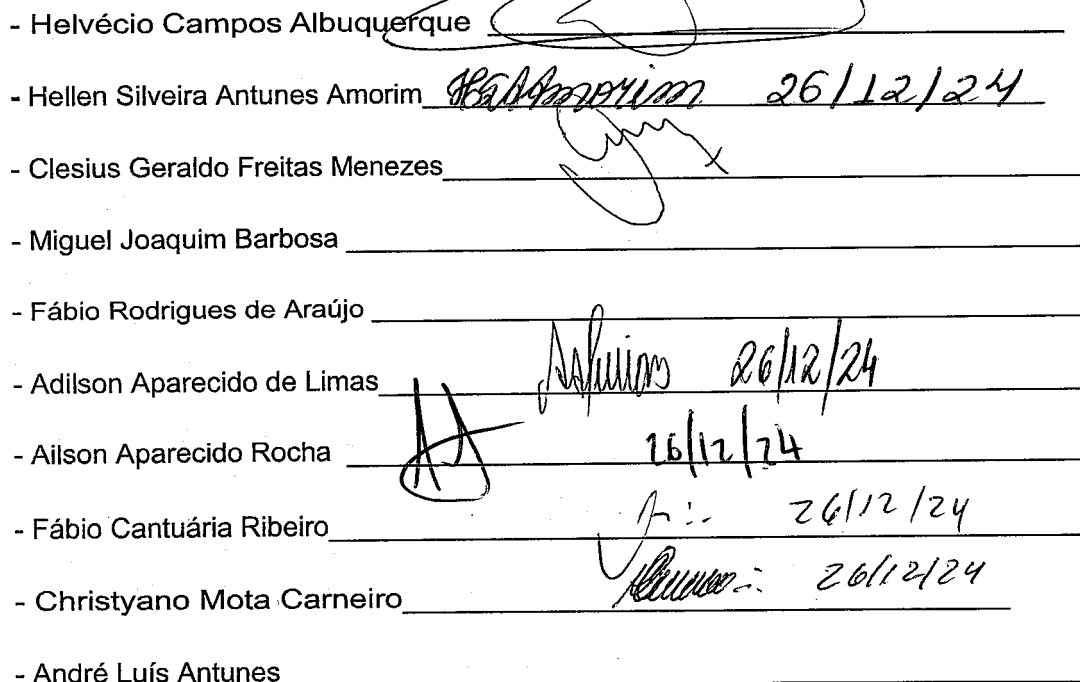 - Helvécio Campos Albuquerque
- Hellen Silveira Antunes Amorim HSAAmorim 26/12/24
- Clesius Geraldo Freitas Menezes
- Miguel Joaquim Barbosa
- Fábio Rodrigues de Araújo
- Adilson Aparecido de Limas 26/12/24
- Ailson Aparecido Rocha 26/12/24
- Fábio Cantuária Ribeiro 26/12/24
- Christyano Mota Carneiro 26/12/24
- André Luís Antunes